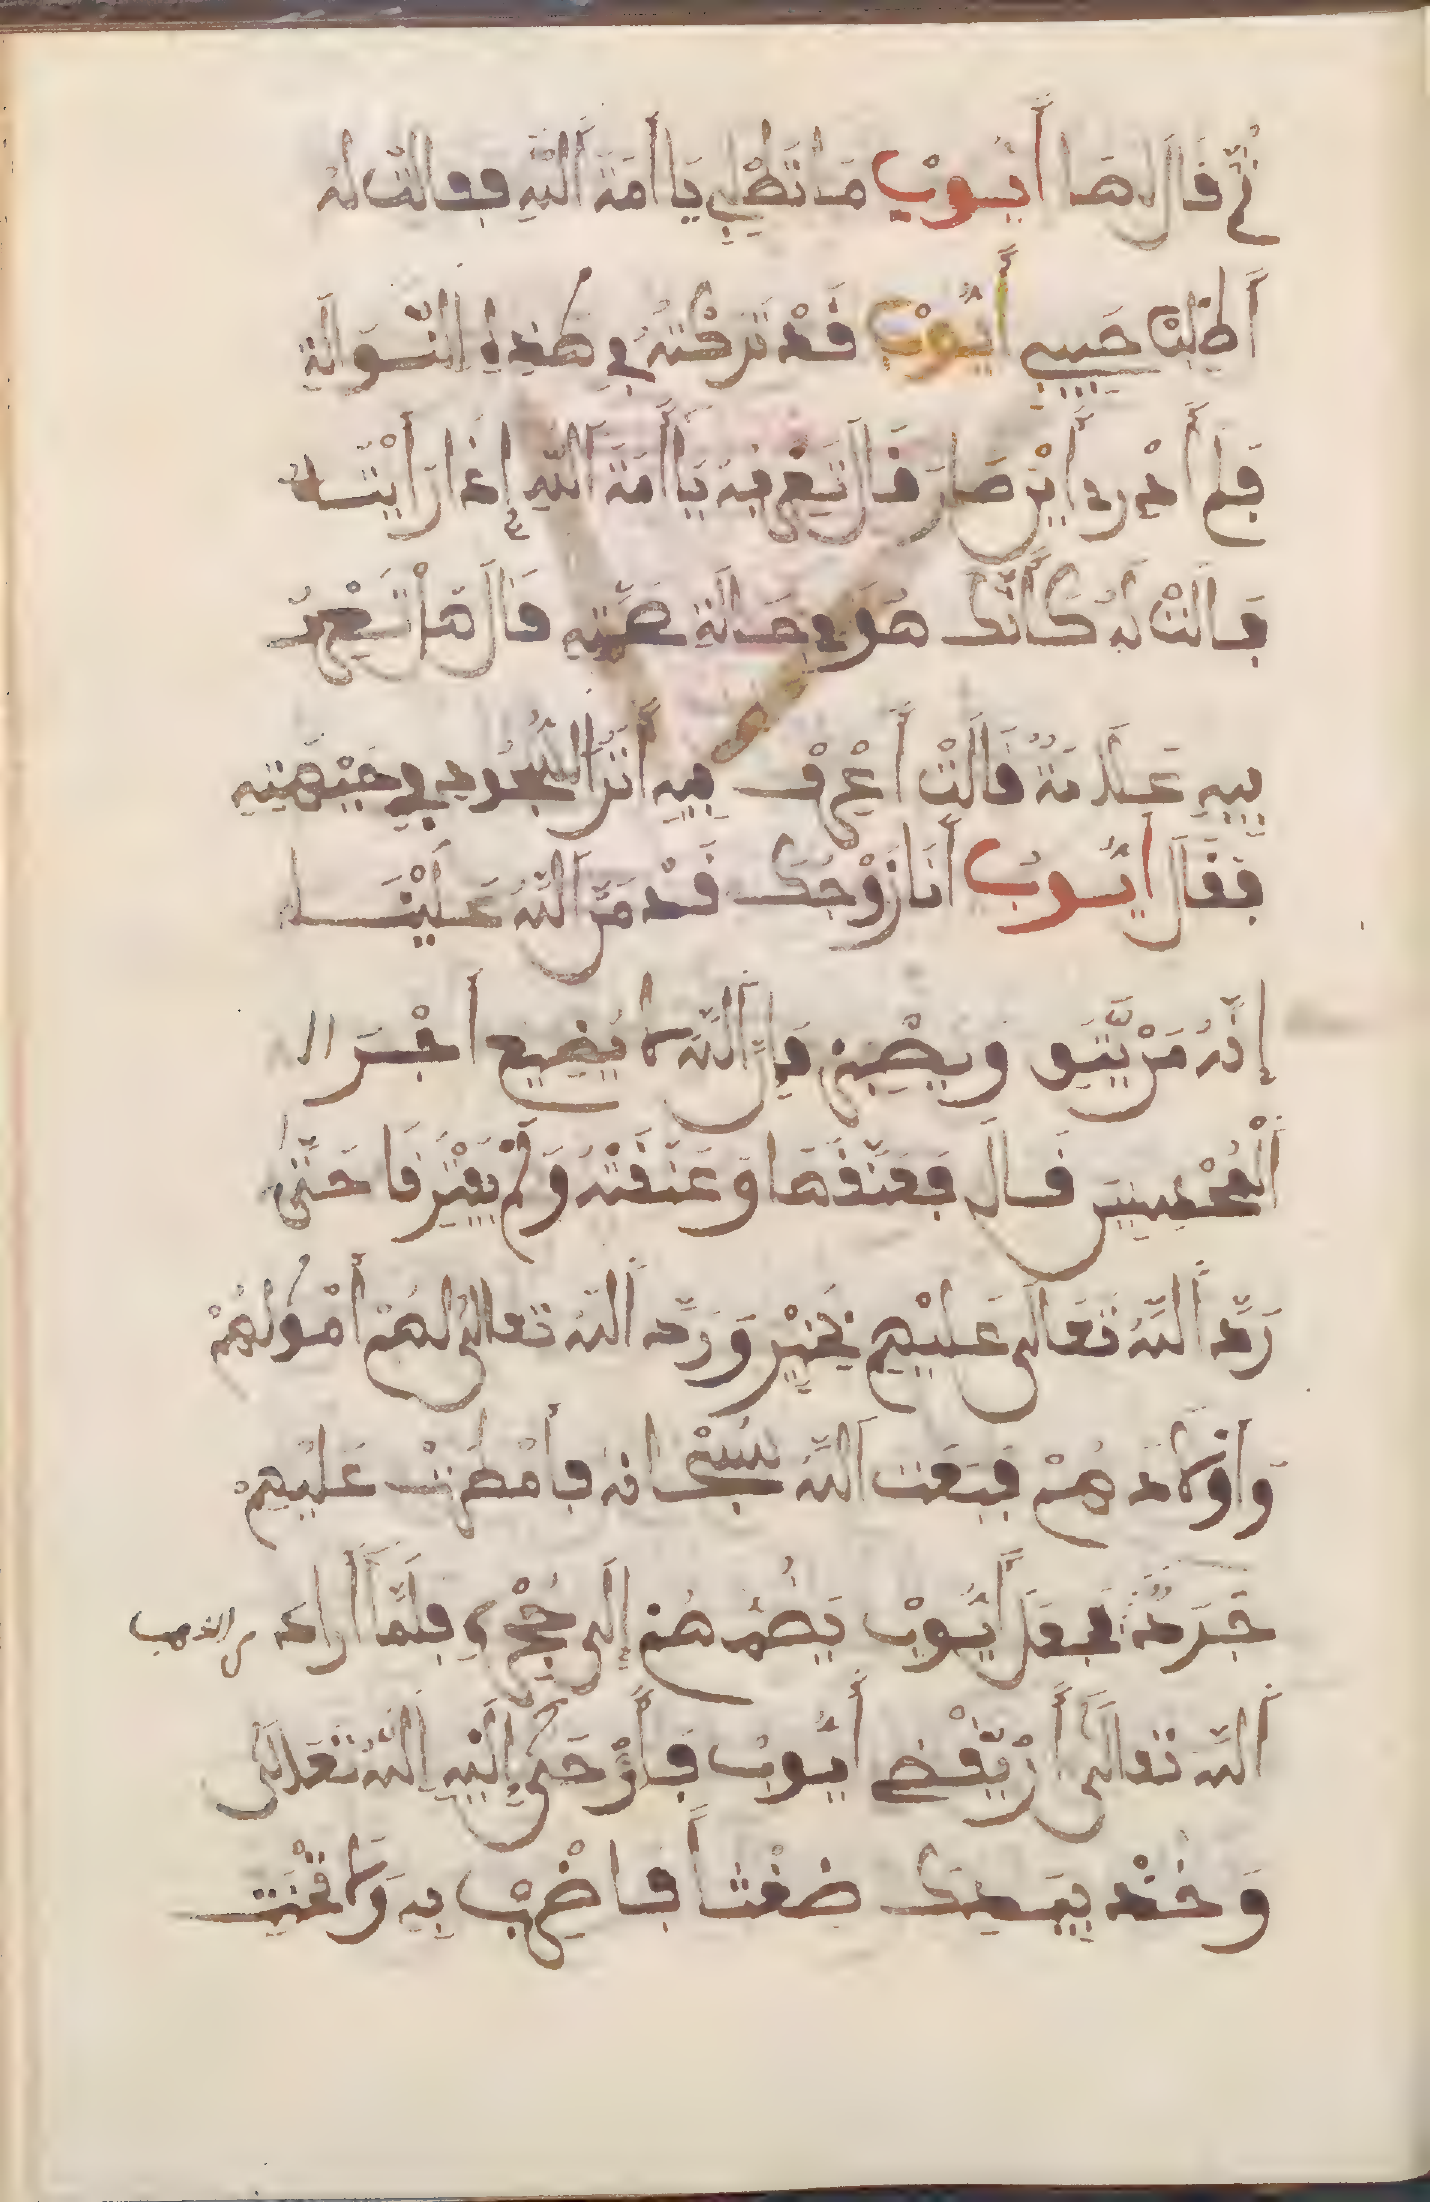 ثُمَّ قَالَ لَهَا أَيُّوبْ مَا تَطْلُبِ يَا أَمَةَ اللَّهِ فقالتْ لَهُ
أَطْلُبُ حَبِيبِي أَيُّوبْ قَدْ تَرَكْتُهُ فِي هَذِهِ النُّوَالَةِ
فَلَمْ أَدْرِ أَيْنَ صَارَ قَالَ تَعْرِفِهُ يَا أَمَةَ اللَّهِ إِذَا رَأَيْتَهُ
فَقَالَتْ لَهُ كَأَنَّكَ هُوَ فِي حَالَةِ صِحَّتِهِ قَالَ هَا تَعْرِفِ
فِيهِ عَلَامَةٌ قَالَتْ أَعْرِفْ فِيهِ أَثَرَ السُّجُودِ فِي جَبْهَتِهِ
فَقَالَ أَيُّوبُ أَنَا زَوْجُكِ قَدْ مَنَّ اللَّهُ عَلَيْنَا
إِنَّهُ مَنْ يَتَّقِ وَيَصْبِرْ فَإِنَّ اللَّهَ لَا يُضِيعُ أَجْرَ ال
الْمُحْسِنِينَ قَالَ فَعَنَّقَهَا وَعَنَقَتْهُ وَلَمْ يَفْتَرِقَا حَتَّى
رَدَّ اللَّهُ تَعَالَى عَلَيْهِمْ بِخَيْرٍ وَرَدَّ اللَّهُ تعالى لَهُمْ أَمْوَالَهُمْ
وَأَوْلَادَهُمْ فَبَعَثَ اللَّهُ سُبْحَانَهُ فَأَمْطَرَتْ عَلَيْهِمْ
جَرَدٌ فَجَعَلَ أَيُّوبْ يَضُمُّهُمْ إِلَى حُجْرِهِ فَلَمَّا أَرَادَ من الذهب
اللَّهُ تعالَى أَنْ يَّقْضِ أَيُّوبُ فَأَوْحَى إِلَيْهِ اللَّهُ تَعَالَى
وَخُذْ بِيَدِكَ ضِغْثاً فَاضْرِبْ بِهِ وَلَا تَحْنَثْ